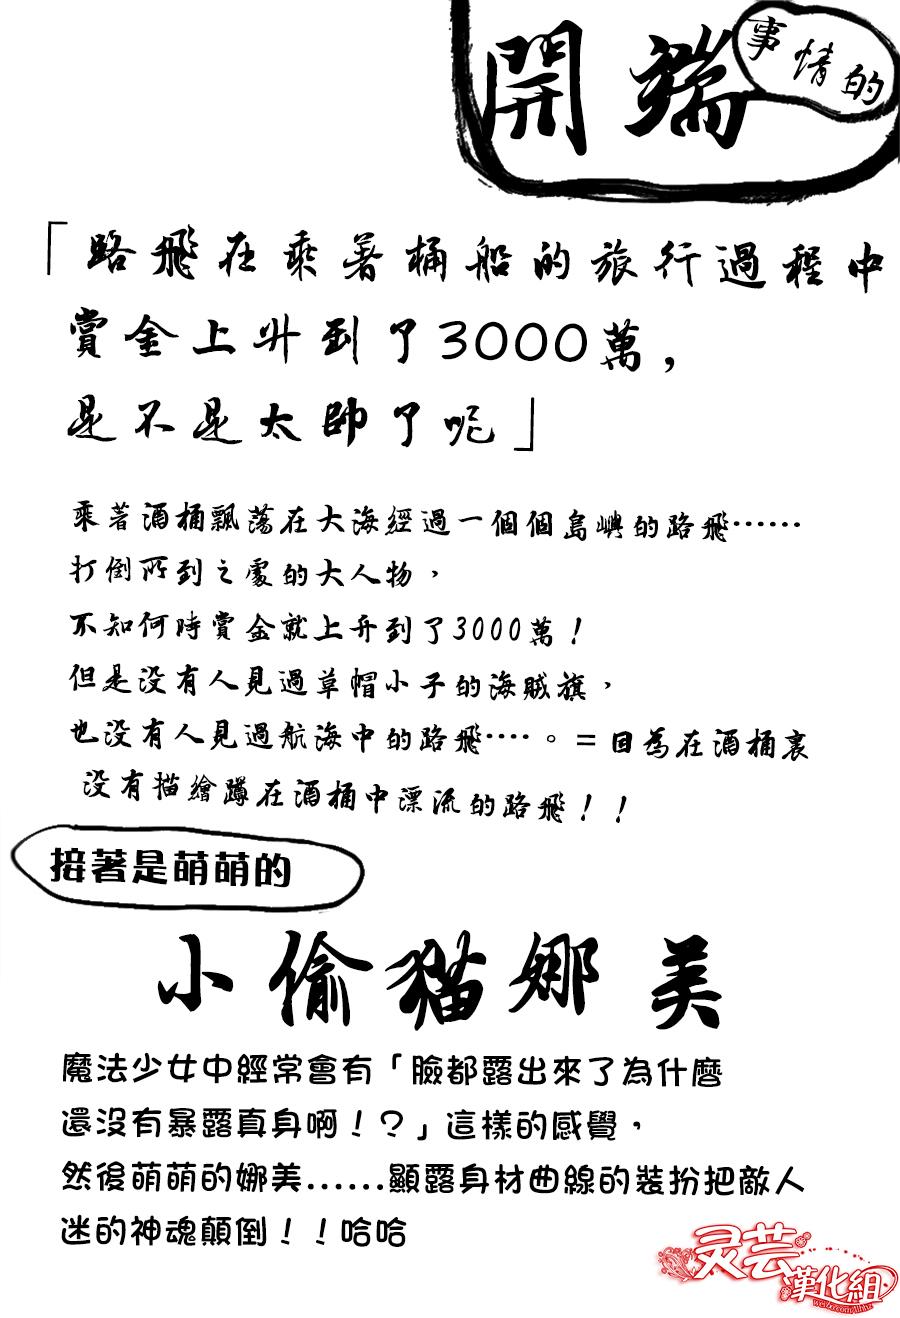 事情的
開端
「路飛在乘著桶船的旅行過程中
賞金上升到了3000萬，
是不是太帥了呢」
乘著酒桶飄蕩在大海經過一個個島嶼的路飛……
打倒所到之處的大人物，
不知何時賞金就上升到了3000萬！
但是沒有人見過草帽小子的海賊旗，
也沒有人見過航海中的路飛……。＝因為在酒桶裏
没有描繪蹲在酒桶中漂流的路飛！！
接著是萌萌的
小偷貓娜美
魔法少女中經常會有「臉都露出來了為什麼
還沒有暴露真身啊！？」這樣的感覺，
然後萌萌的娜美......顯露身材曲線的裝扮把敵人
迷的神魂顛倒！！哈哈
灵芸
漢化組